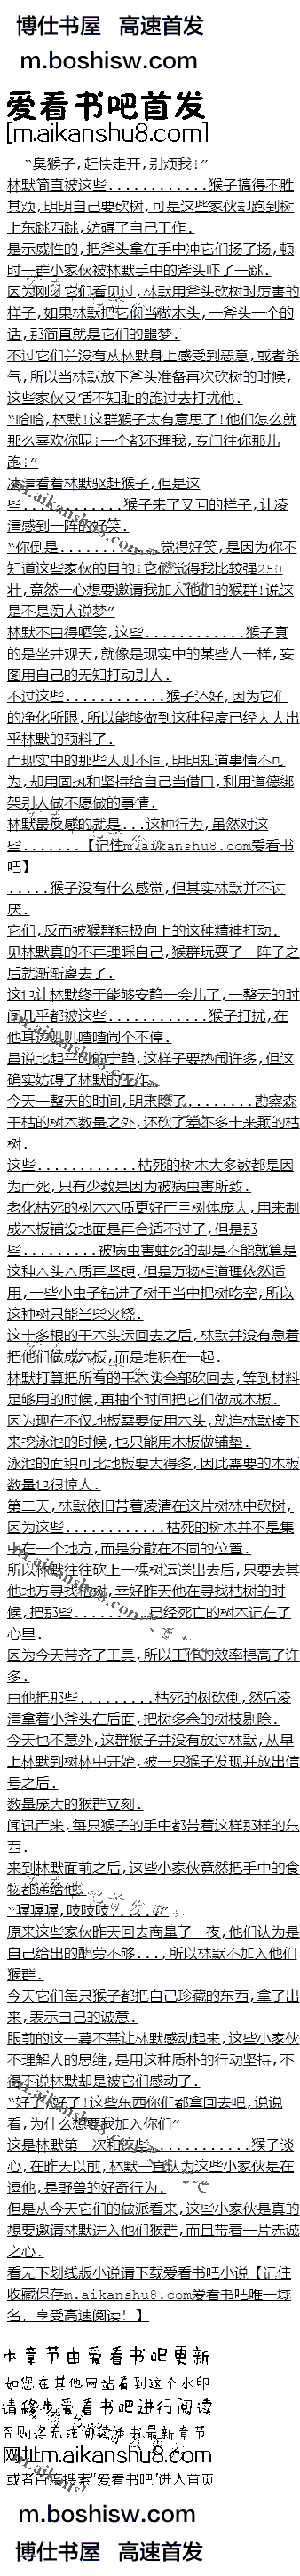 博仕书屋 高速首发
m.boshisw.com
爱看书吧首发
[m.aikanshu8.com]
“臭猴子,赶快走开,别烦我!”
林默简直被这些............猴子搞得不胜
其烦,明明自己要砍树,可是这些家伙却跑到树
上东跳西跳,妨碍了自己工作.
是示威性的,把斧头拿在手中冲它们扬了扬,顿
时一群小家伙被林默手中的斧头吓了一跳.
因为刚才它们看见过,林默用斧头砍树时厉害的
样子,如果林默把它们当做木头,一斧头一个的
话,那简直就是它们的噩梦.
不过它们并没有从林默身上感受到恶意,或者杀
气,所以当林默放下斧头准备再次砍树的时候,
这些家伙又恬不知耻的跑过去打扰他.
“哈哈,林默!这群猴子太有意思了!他们怎么就
那么喜欢你呢!一个都不理我,专门往你那儿
跑!”
凌清看着林默驱赶猴子,但是这
些............猴子来了又回的样子,让凌
清感到一阵的好笑.
“你倒是............觉得好笑,是因为你不
知道这些家伙的目的!它们觉得我比较强250
壮,竟然一心想要邀请我加入他们的猴群!说这
是不是痴人说梦”
林默不由得哂笑,这些............猴子真
的是坐井观天,就像是现实中的某些人一样,妄
图用自己的无知打动别人.
不过这些............猴子还好,因为它们
的净化所限,所以能够做到这种程度已经大大出
乎林默的预料了.
而现实中的那些人则不同,明明知道事情不可
为,却用固执和坚持给自己当借口,利用道德绑
架别人做不愿做的事情.
林默最反感的就是...这种行为,虽然对这
些.......【记住m.aikanshu8.com爱看书
吧】
.....猴子没有什么感觉,但其实林默并不讨
厌.
它们,反而被猴群积极向上的这种精神打动.
见林默真的不再理睬自己,猴群玩耍了一阵子之
后就渐渐离去了.
这也让林默终于能够安静一会儿了,一整天的时
间几乎都被这些............猴子打扰,在
他耳边叽叽喳喳闹个不停.
虽说比起一般的宁静,这样子要热闹许多,但这
确实妨碍了林默的工作.
今天一整天的时间,明末除了........勘察森
干枯的树木数量之外,还砍了差不多十来颗的枯
树.
这些............枯死的树木大多数都是因
为产死,只有少数是因为被病虫害所致.
老化枯死的树木木质更好而且树体庞大,用来制
成木板铺设地面是再合适不过了,但是那
些.........被病虫害蛀死的却是不能就算是
这种木头木质再坚硬,但是万物相道理依然适
用,一些小虫子钻进了树干当中把树吃空,所以
这种树只能当柴火烧.
这十多根的干木头运回去之后,林默并没有急着
把他们做成木板,而是堆积在一起.
林默打算把所有的干木头全部砍回去,等到材料
足够用的时候,再抽个时间把它们做成木板.
因为现在不仅地板需要使用木头,就连林默接下
来挖泳池的时候,也只能用木板做铺垫.
泳池的面积可比地板要大得多,因此需要的木板
数量也很惊人.
第二天,林默依旧带着凌清在这片树林中砍树,
因为这些............枯死的树木并不是集
中在一个地方,而是分散在不同的位置.
所以林默往往砍上一棵树运送出去后,只要去其
他地方寻找枯树,幸好昨天他在寻找枯树的时
候,把那些.........已经死亡的树木记在了
心里.
因为今天带齐了工具,所以工作的效率提高了许
多.
由他把那些.........枯死的树砍倒,然后凌
清拿着小斧头在后面,把树多余的树枝剔除.
今天也不意外,这群猴子并没有放过林默,从早
上林默到树林中开始,被一只猴子发现并放出信
号之后.
数量庞大的猴群立刻.
闻讯而来,每只猴子的手中都带着这样那样的东
西.
来到林默面前之后,这些小家伙竟然把手中的食
物都递给他.
“喔喔喔,吱吱吱......”
原来这些家伙昨天回去商量了一夜,他们认为是
自己给出的酬劳不够...,所以林默不加入他们
猴群.
今天它们每只猴子都把自己珍藏的东西,拿了出
来,表示自己的诚意.
眼前的这一幕不禁让林默感动起来,这些小家伙
不理解人的思维,是用这种质朴的行动坚持,不
得不说林默却是被它们感动了.
“好了好了!这些东西你们都拿回去吧,说说
看,为什么想要我加入你们”
这是林默第一次和这些............猴子谈
心,在昨天以前,林默一直认为这些小家伙是在
逗他,是野兽的好奇行为.
但是从今天它们的做派看来,这些小家伙是真的
想要邀请林默进入他们猴群,而且带着一片赤诚
之心.
看无下划线版小说请下载爱看书吧小说【记住
收藏保存m.aikanshu8.com爱看书吧唯一域
名，享受高速阅读！】
本章节由爱看书吧更新
如您在其他网站看到这个水印
请移步爱看书吧进行阅读
否则将无法阅读本书最新章节
网址m.aikanshu8.com
或者百度搜索“爱看书吧”进入首页
m.boshisw.com
博仕书屋 高速首发